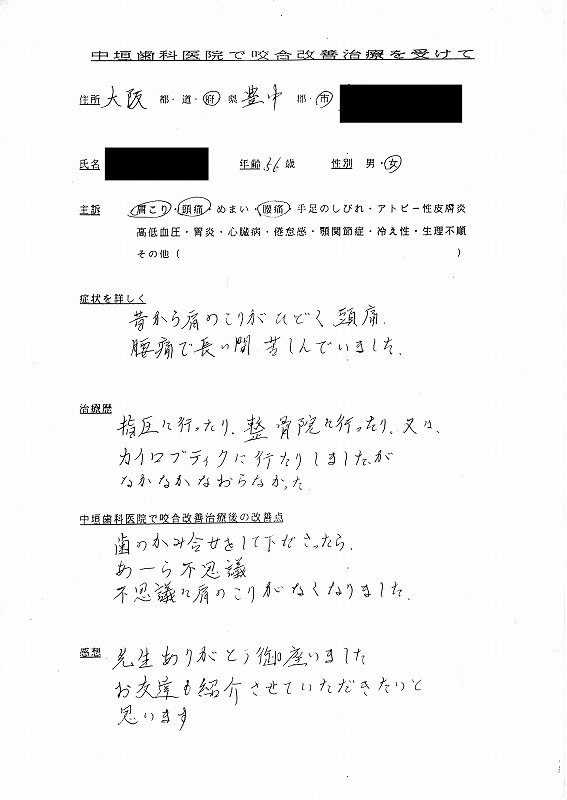 中垣歯科医院で咬合改善治療を受けて
住所 大阪 都・道・府 県 豊中 郡・市
氏名 年齢 56 歳 性別 男・女
主訴 肩こり・頭痛・めまい・腰痛・手足のしびれ・アトピー性皮膚炎
高低血圧・胃炎・心臓病・倦怠感・顎関節症・冷え性・生理不順
その他( )
症状を詳しく
昔から肩のこりがひどく頭痛、
腰痛で長い間苦しんでいました。
治療歴
指圧に行ったり、整骨院に行ったり、又は、
カイロプティクに行たりしましたが
なかなかなおらなかった
中垣歯科医院で咬合改善治療後の改善点
歯のかみ合せをして下ださったら、
あーら不思議
不思議に肩のこりがなくなりました。
感想 先生ありがとう御座いました
お友達も紹介させていただきたいと
思います